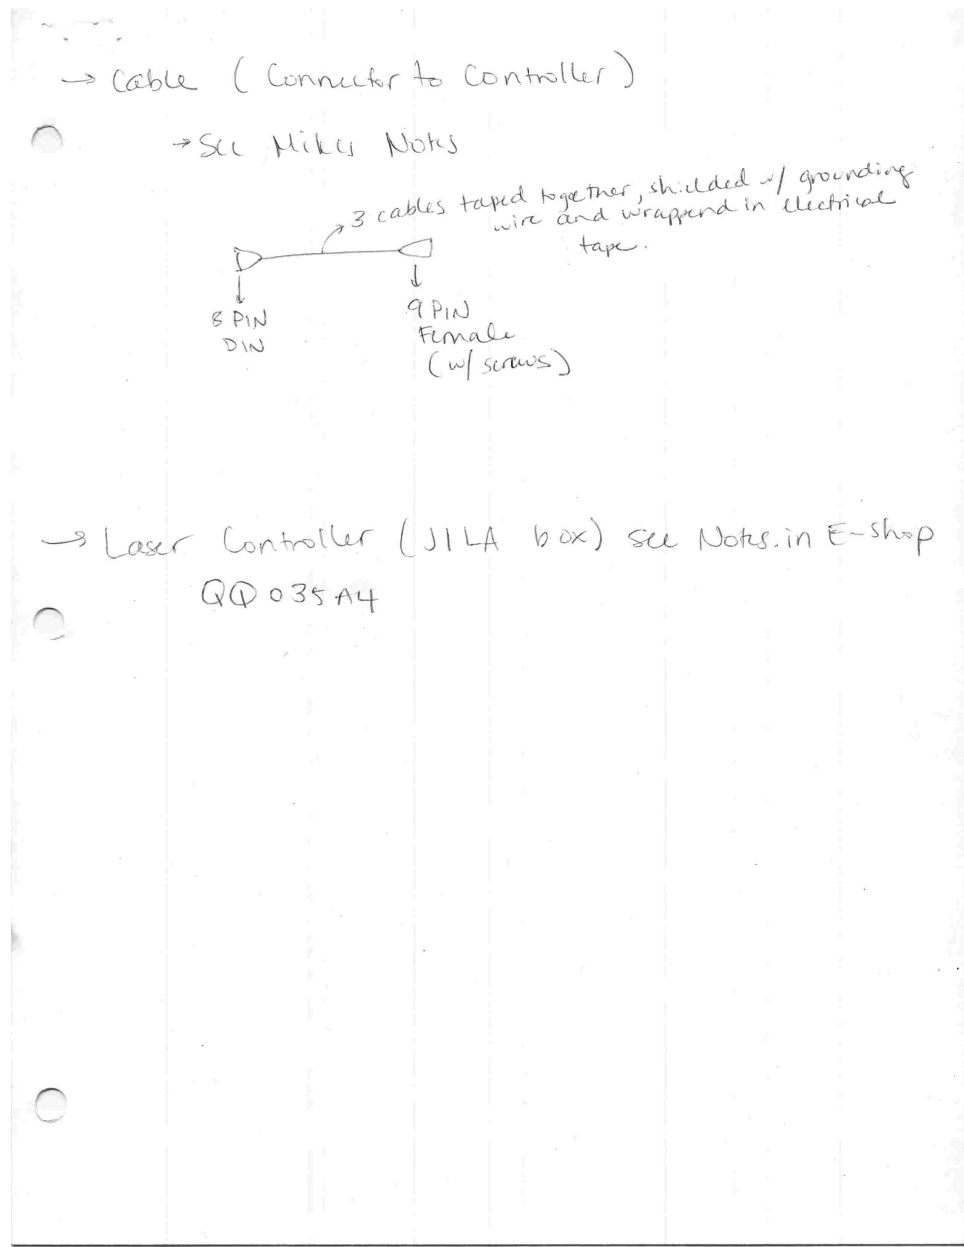 → Cable (Connector to Controller)
→ See Mikes Notes
3 cables taped together, shielded w/ grounding
wire and wrappend in electrical
tape.
8 PIN
DIN
9 PIN
Female
(w/ screws)
→ Laser Controller (JILA box) see Notes in E-shop
QQ035A4